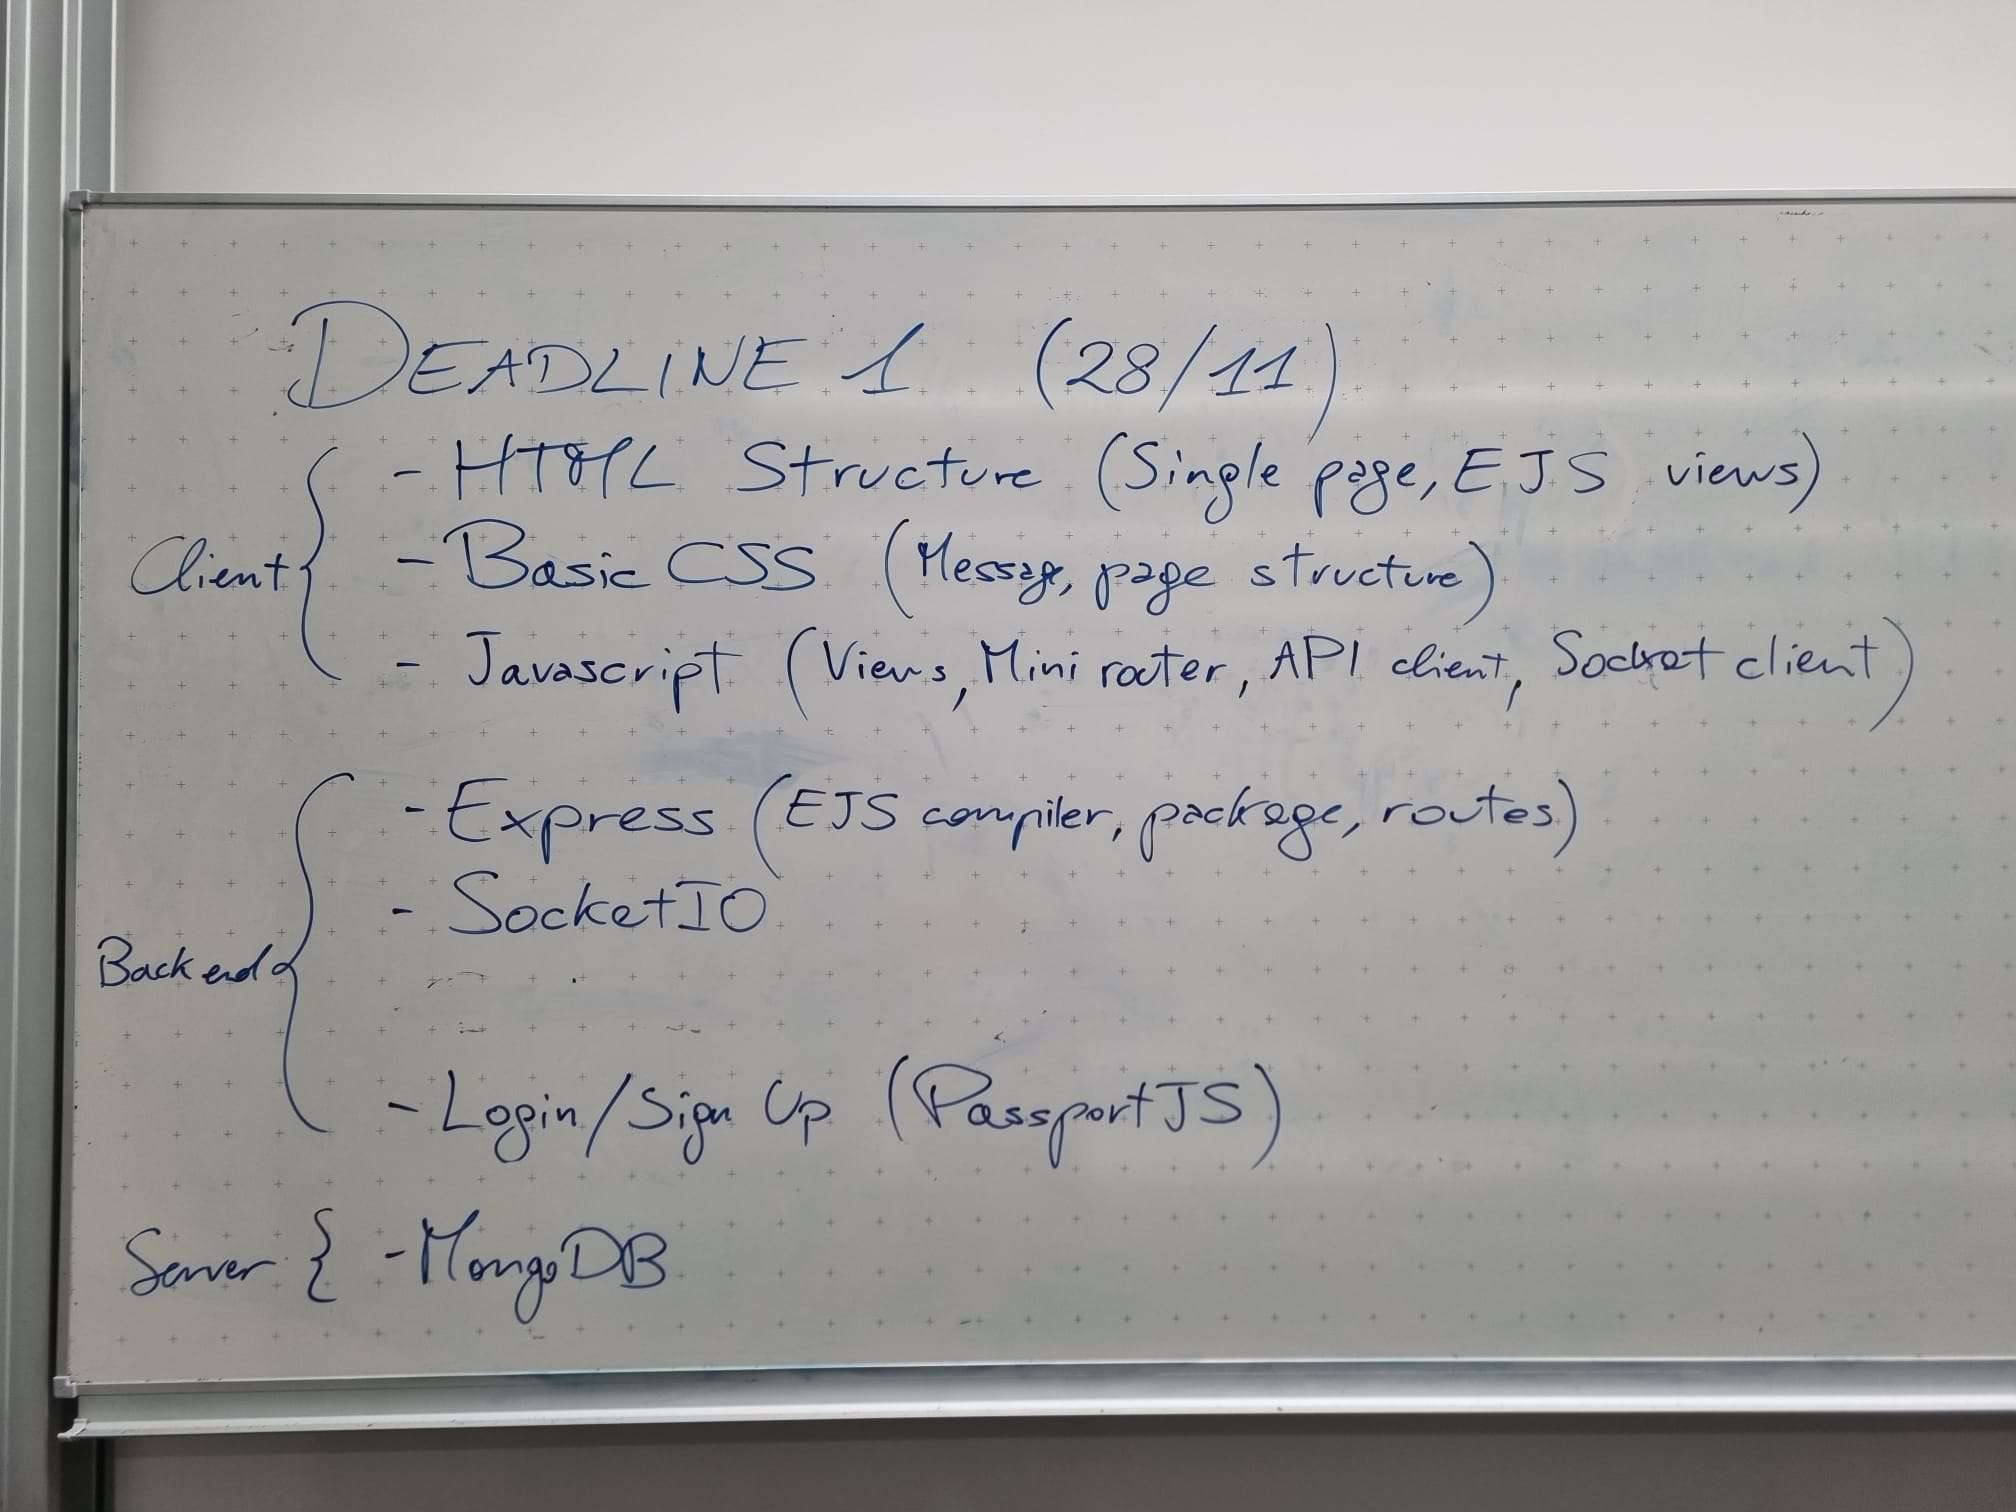 DEADLINE 1 (28/11)
Client
- HTML Structure (Single page, EJS views)
- Basic CSS (Message, page structure)
- Javascript (Views, Mini router, API client, Socket client)
Backend
- Express (EJS compiler, package, routes)
- SocketIO
- Login/Sign Up (PassportJS)
Server { - MongoDB